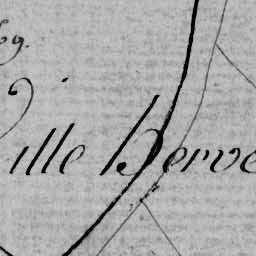 69.
Ville Herve